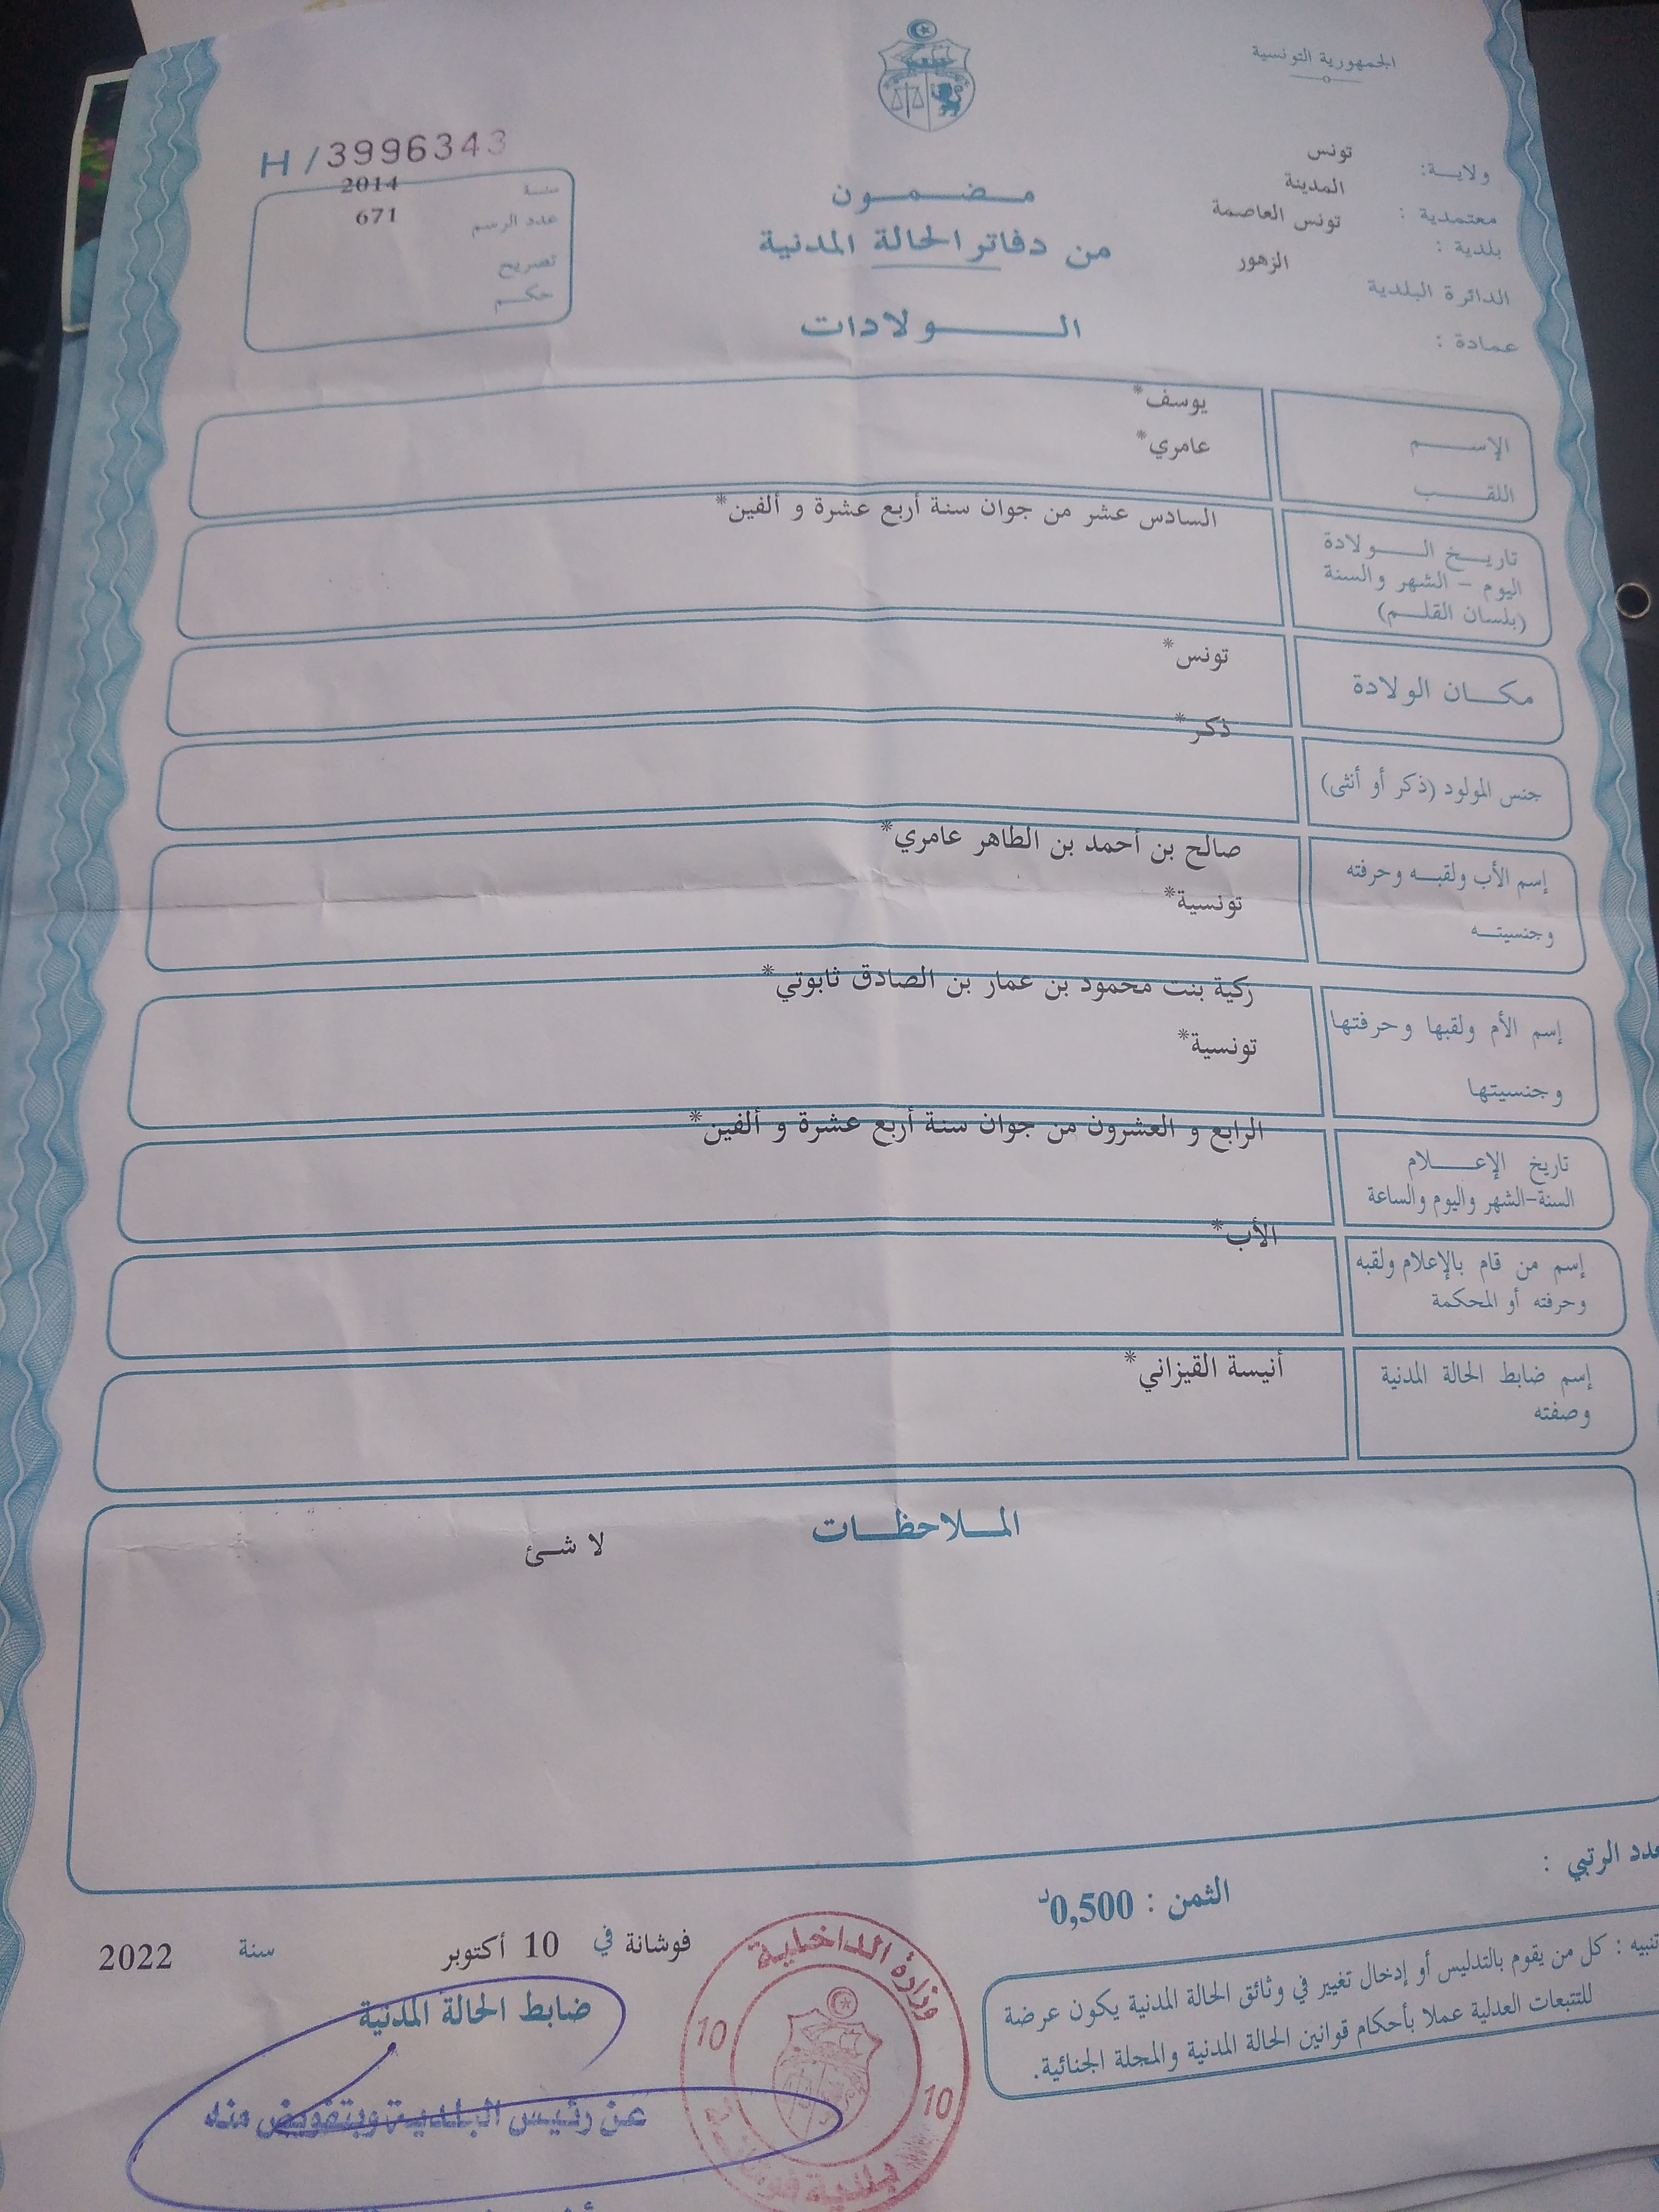 الجمهورية التونسية
ولاية: تونس
معتمدية : المدينة
بلدية : تونس العاصمة
الدائرة البلدية الزهور
عمادة :
H / 3996343
سنة 2014
عدد الرسم 671
تصريح
حكم
مضمون
من دفاتر الحالة المدنية
الولادات
الإسم يوسف*
اللقب عامري*
تاريخ الولادة السادس عشر من جوان سنة أربع عشرة و ألفين*
اليوم - الشهر والسنة
(بلسان القلم)
مكان الولادة تونس*
جنس المولود (ذكر أو أنثى) ذكر*
إسم الأب ولقبه وحرفته صالح بن أحمد بن الطاهر عامري*
وجنسيته تونسية*
إسم الأم ولقبها وحرفتها زكية بنت محمود بن عمار بن الصادق ثابوتي*
وجنسيتها تونسية*
تاريخ الإعلام الرابع و العشرون من جوان سنة أربع عشرة و ألفين*
السنة-الشهر واليوم والساعة
إسم من قام بالإعلام ولقبه الأب*
وحرفته أو المحكمة
إسم ضابط الحالة المدنية أنيسة القيزاني*
وصفته
الملاحظات
لا شئ
عدد الرتبي :
الثمن : 0,500د
تنبيه : كل من يقوم بالتدليس أو إدخال تغيير في وثائق الحالة المدنية يكون عرضة
للتتبعات العدلية عملا بأحكام قوانين الحالة المدنية والمجلة الجنائية.
فوشانة في 10 أكتوبر سنة 2022
ضابط الحالة المدنية
عن رئيس البلدية وبتفويض منه
وزارة الداخلية
10 10
بلدية